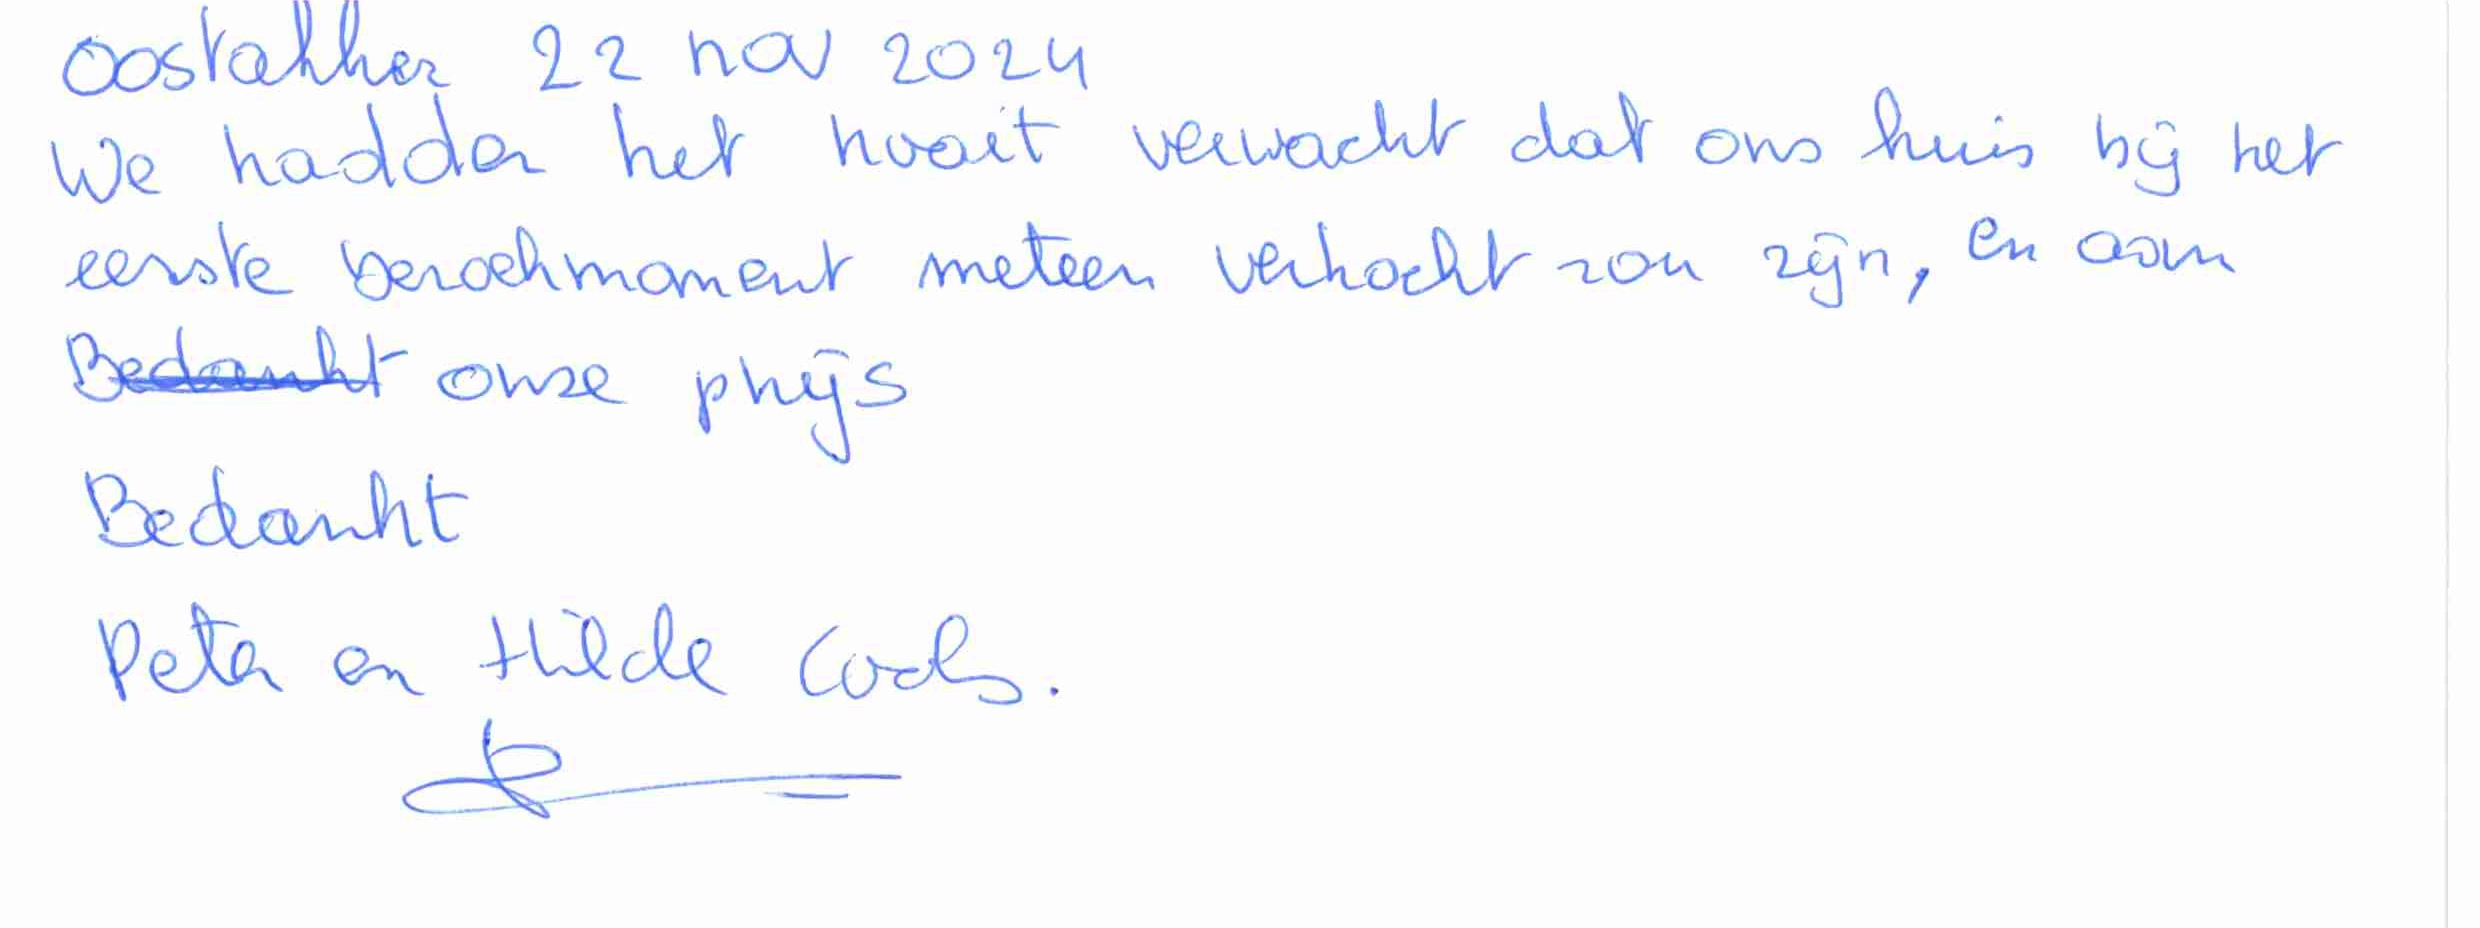 Oostakker 22 nov 2024
We hadden het nooit verwacht dat ons huis bij het
eerste bezoekmoment meteen verkocht zou zijn, en aan
Bedankt onze prijs
Bedankt
Peter en Hilde Cools.